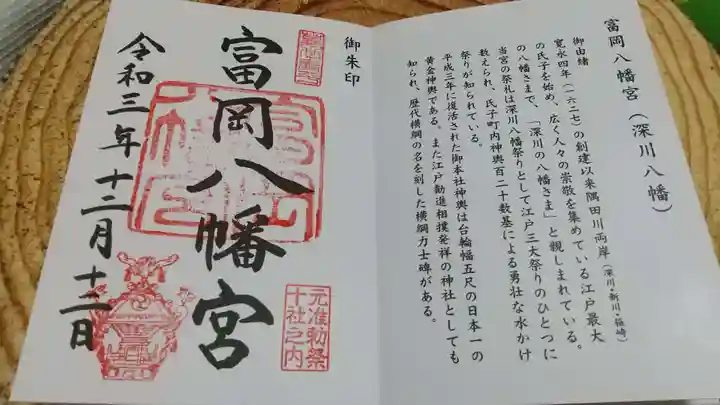 富岡八幡宮(深川八幡)
御由緒
寛永四年(一六二七)の創建以来隅田川両岸(深川・新川・箱崎)
の氏子を始め、広く人々の崇敬を集めている江戸最大
の八幡さまで、「深川の八幡さま」と親しまれている。
当宮の祭礼は深川八幡祭りとして江戸三大祭りのひとつに
数えられ、氏子町内神輿百二十数基による勇壮な水かけ
祭りが知られている。
平成三年に復活された御本社神輿は台輪幅五尺の日本一の
黄金神輿である。また江戸勧進相撲発祥の神社としても
知られ、歴代横綱の名を刻した横綱力士碑がある。
御朱印
富岡八幡宮
元准勅祭
十社之内
令和三年十二月十二日